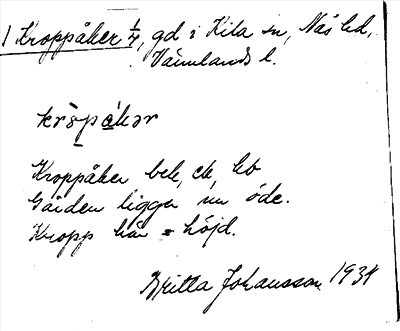 1 Kroppåker 1/4, gd i Kila sn, Näs hd,
Värmlands l.
Kroppåker bek, ek, hb
Gården ligger nu öde.
Kropp här = höjd.
Britta Johansson 1934